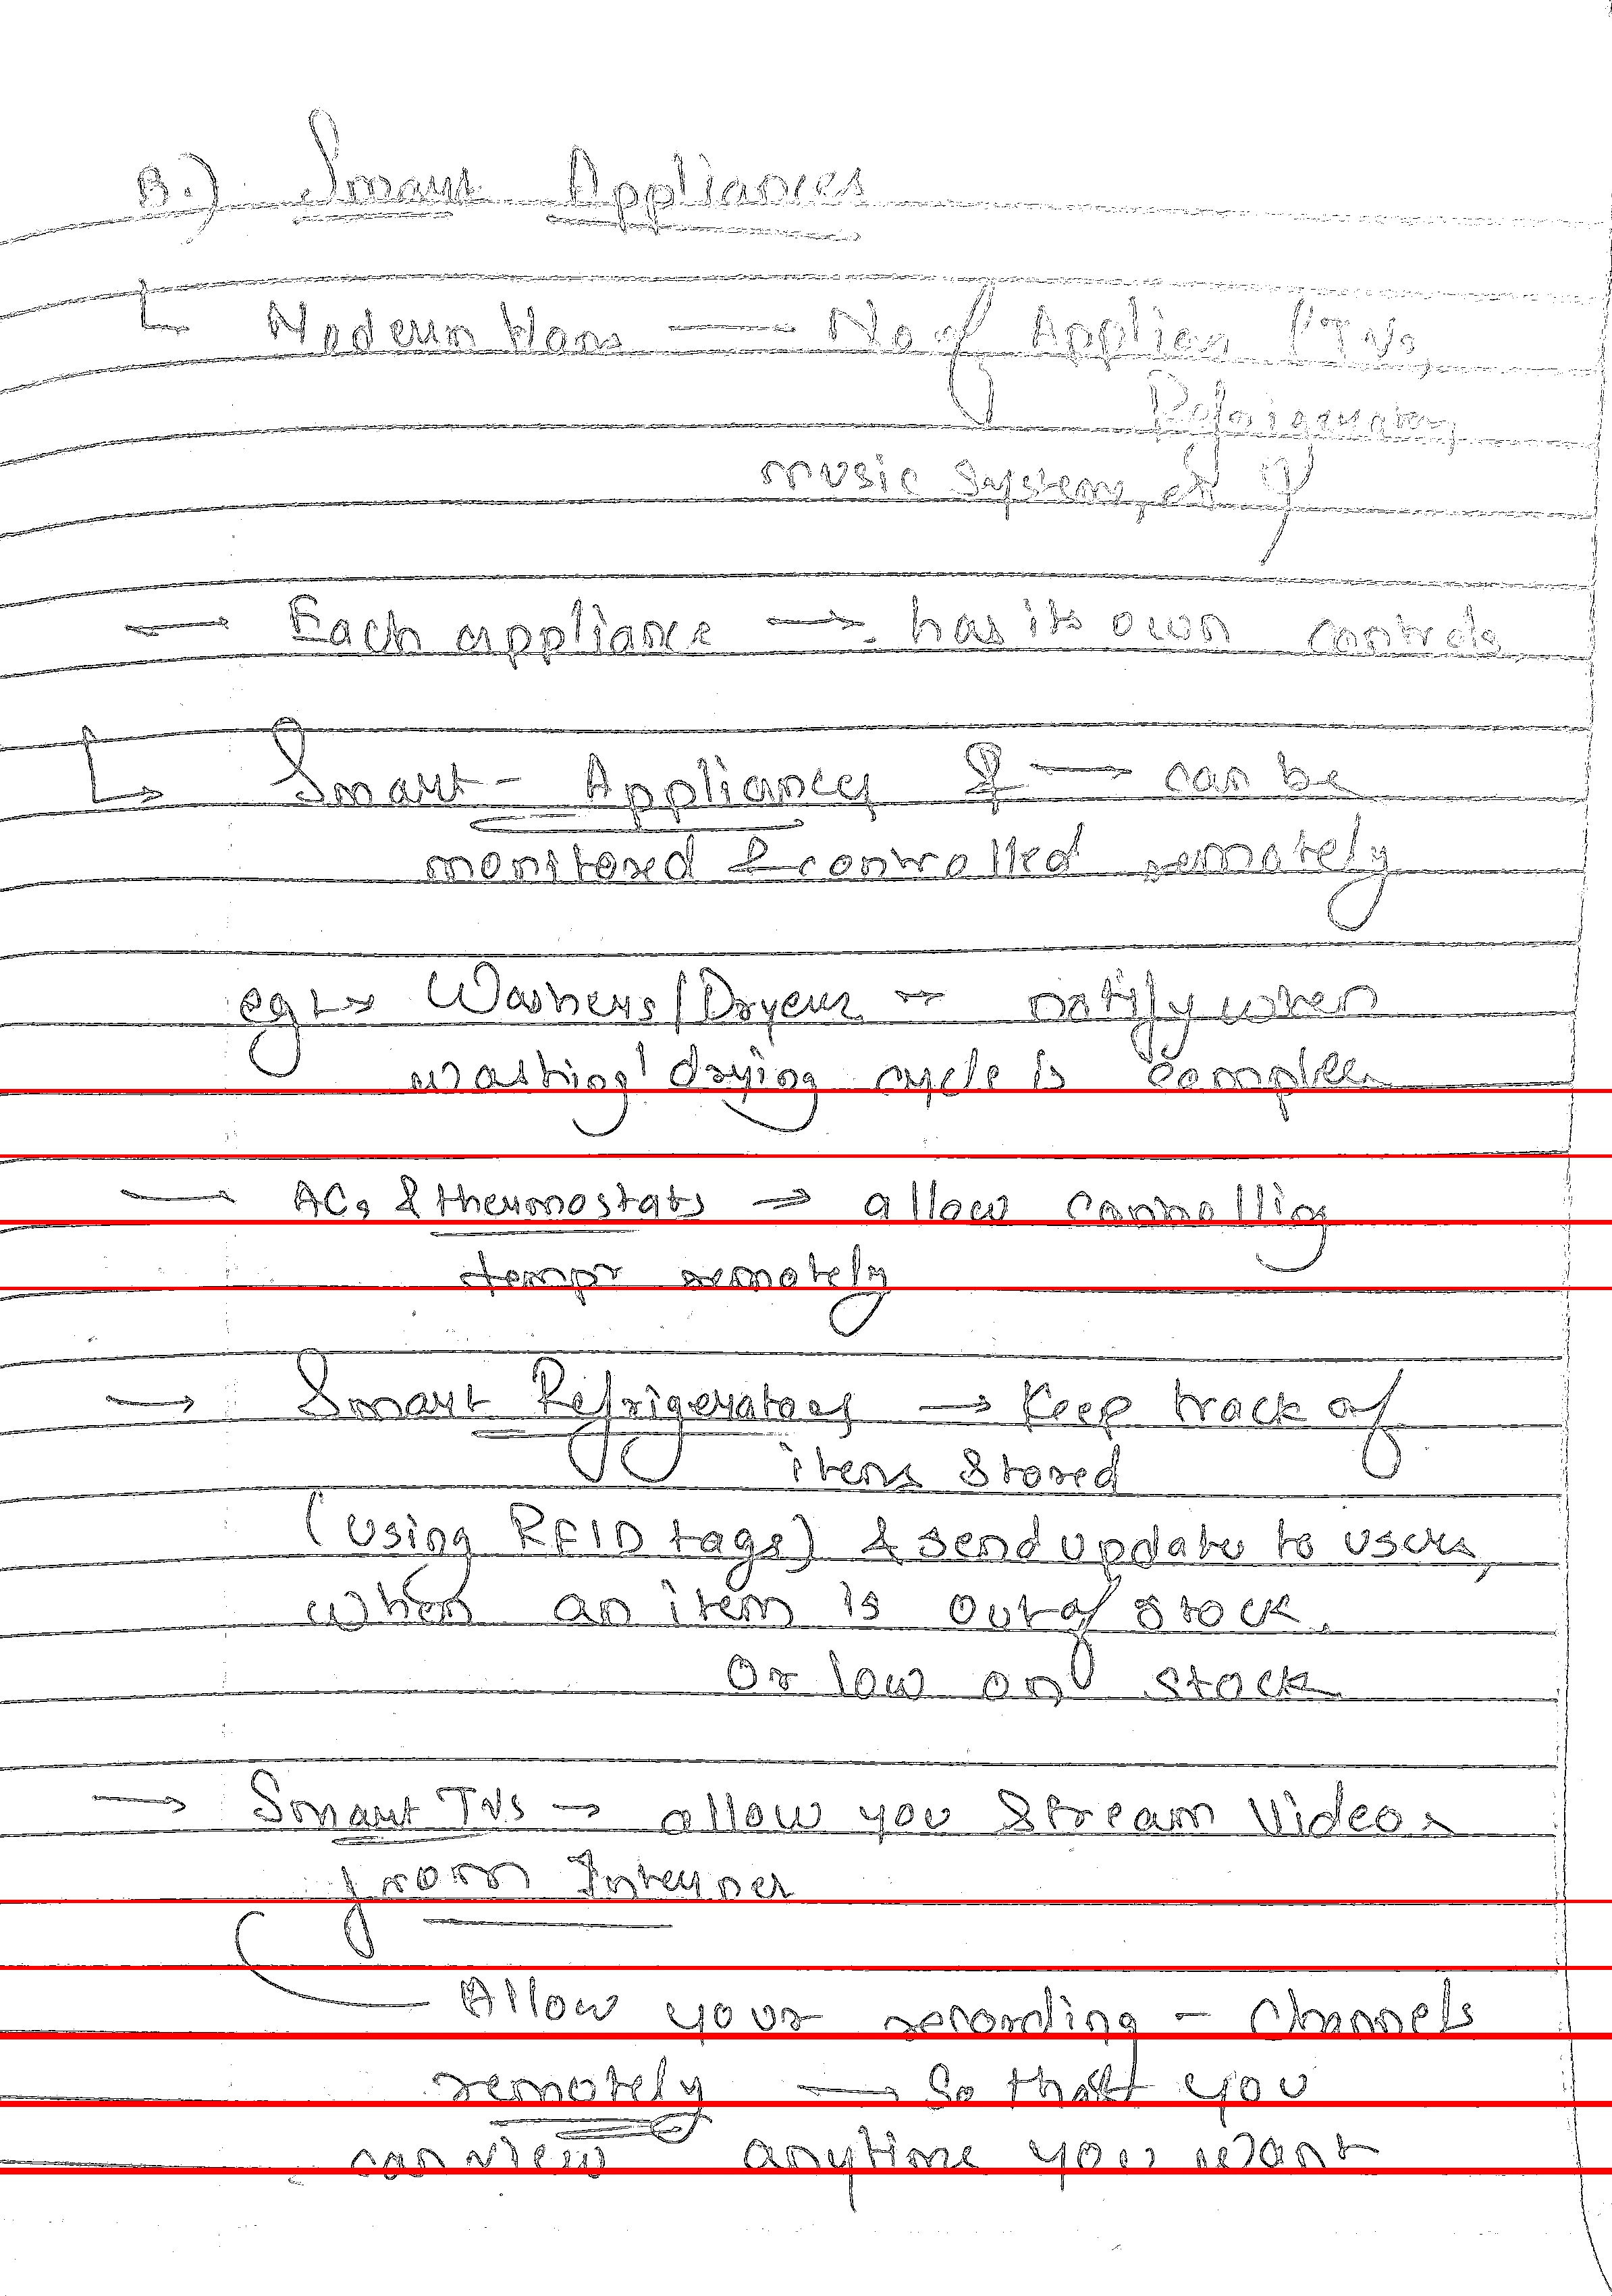 B.) Smart Appliances
↳ Modern Homes — No of Applian (TVs,
Refrigerator,
music system, etc)
— Each appliance → has its own controls
↳ Smart - Appliances → can be
monitored & controlled remotely
eg ↳ Washers/Dryers → notify when
washing/drying cycle is complete
— ACs & thermostats → allow controlling
tempr remotely
→ Smart Refrigerators → Keep track of
items stored
(using RFID tags) & send update to users,
when an item is out of stock.
Or low on stock
→ Smart TVs → allow you stream Videos
from Internet
Allow your recording - Channels
remotely → So that you
can view anytime you want